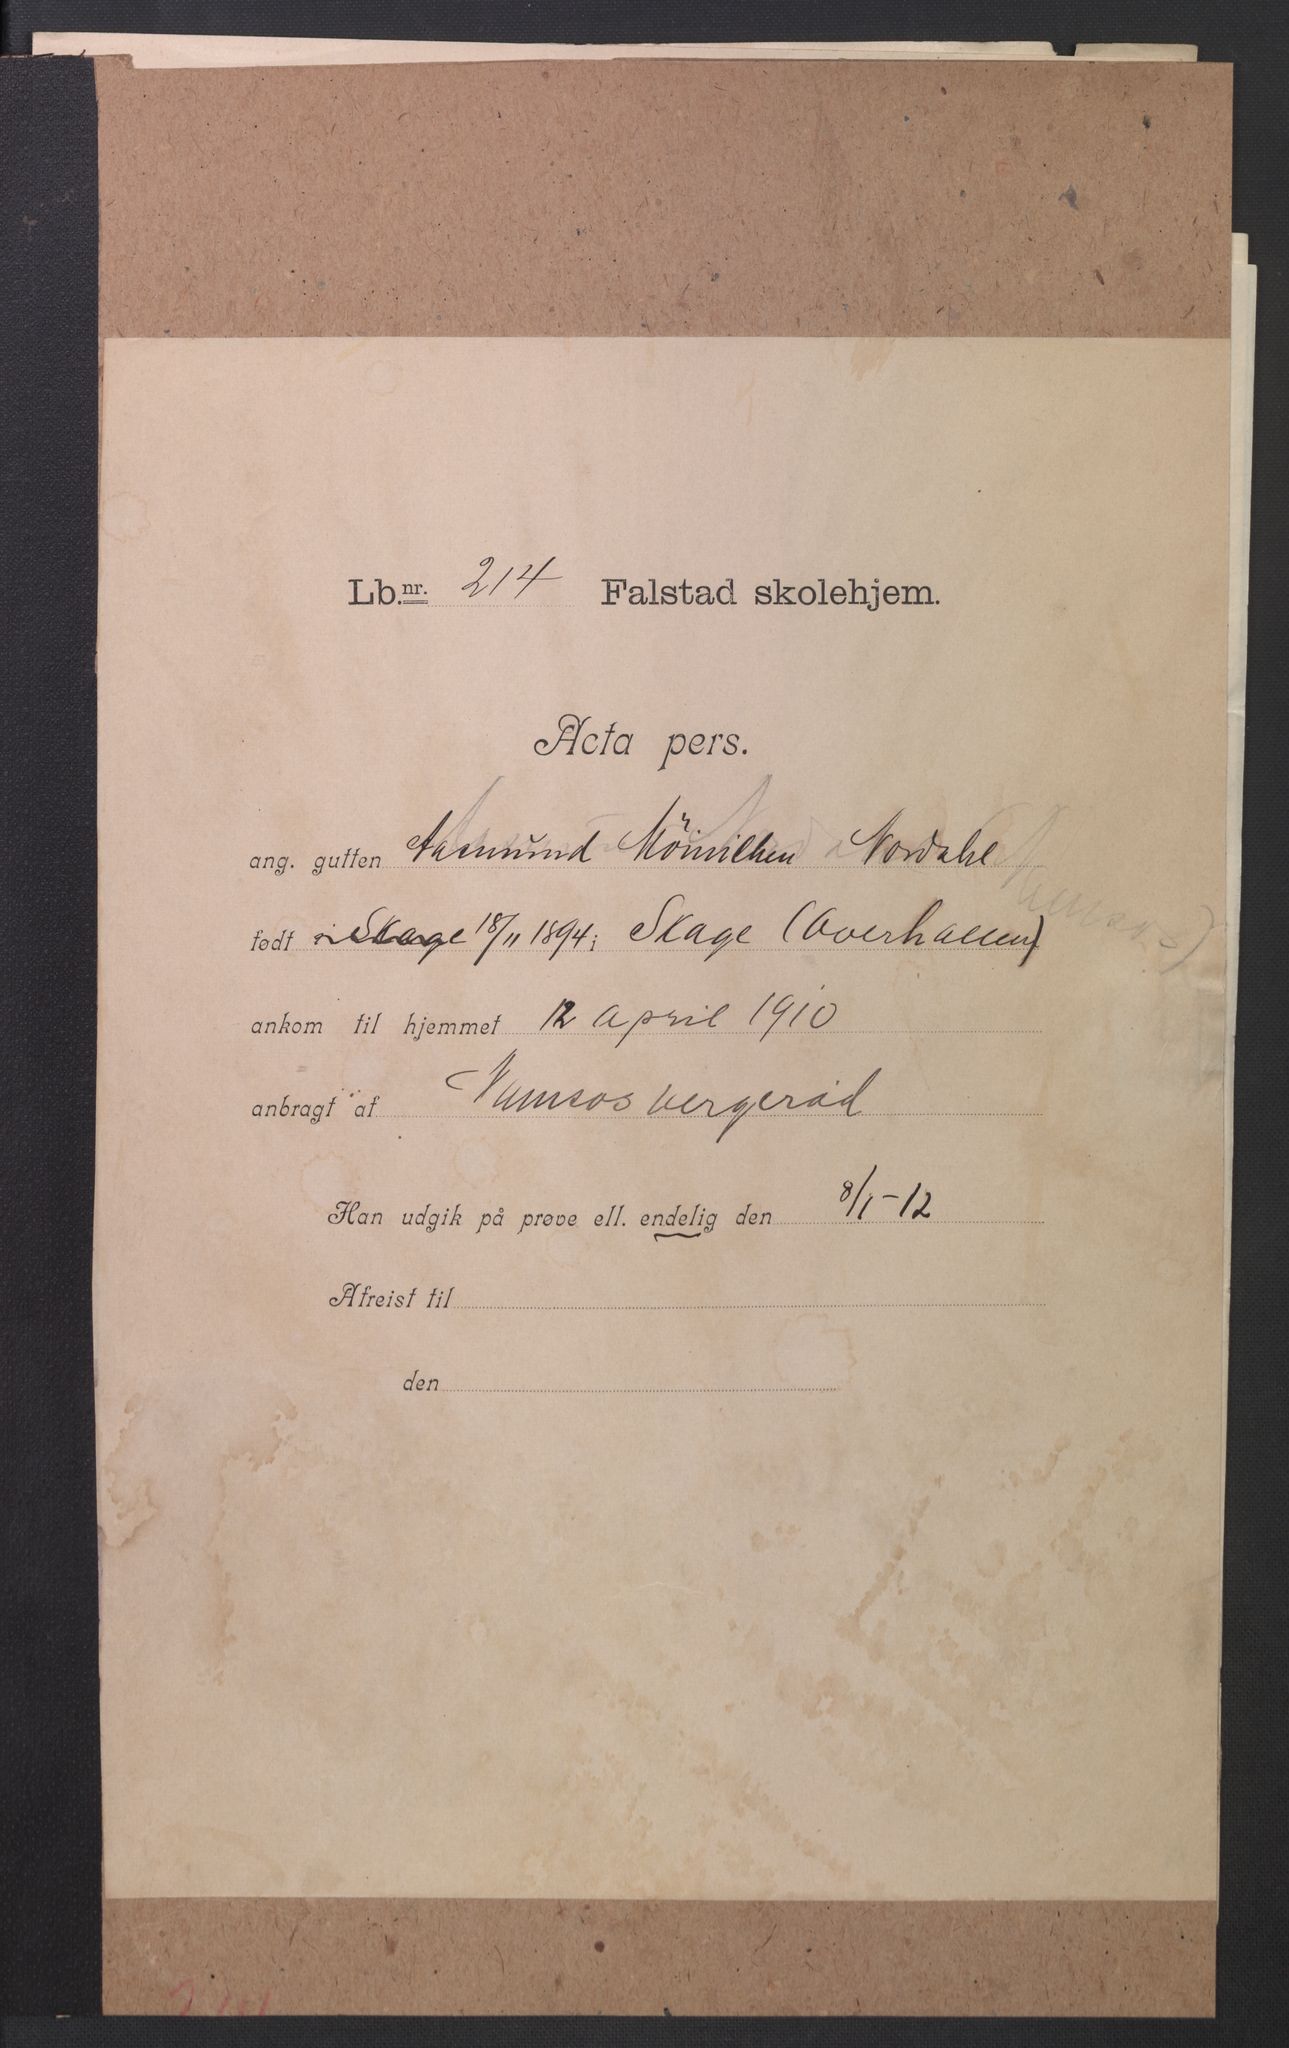 Lb.nr. 214 Falstad skolehjem.
Acta pers.
ang. gutten Aasmund Nordahl
født i Skage 18/11 1894; Skage (Overhallen)
ankom til hjemmet 12 april 1910
anbragt af Namsos vergeråd
Han udgik på prøve ell. endelig den 8/1-12
Afreist til
den